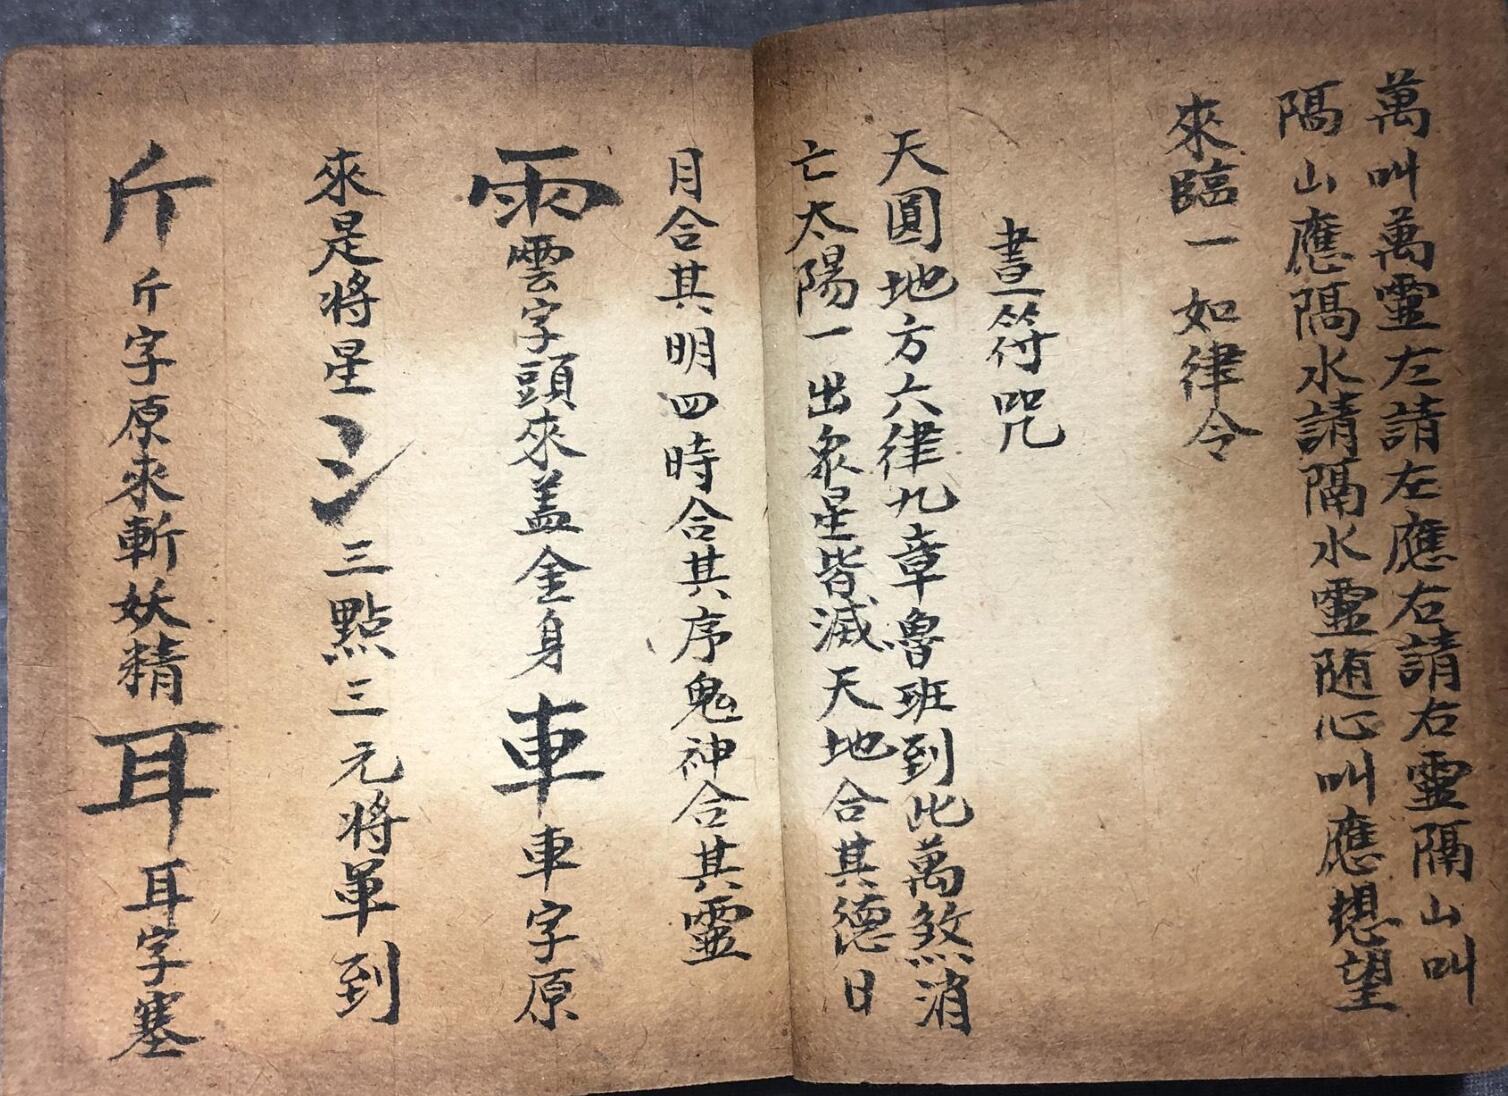 萬叫萬靈左請左應右請右靈隔山叫
隔山應隔水請隔水靈随心叫應想望
來臨一如律令
畫符咒
天圓地方六律九章魯班到此萬煞消
亡太陽一出衆星皆滅天地合其德日
月合其明四時合其序鬼神合其靈
雨雲字頭來盖金身車車字原
來是将星氵三點三元将军到
斤斤字原來斬妖精耳耳字塞